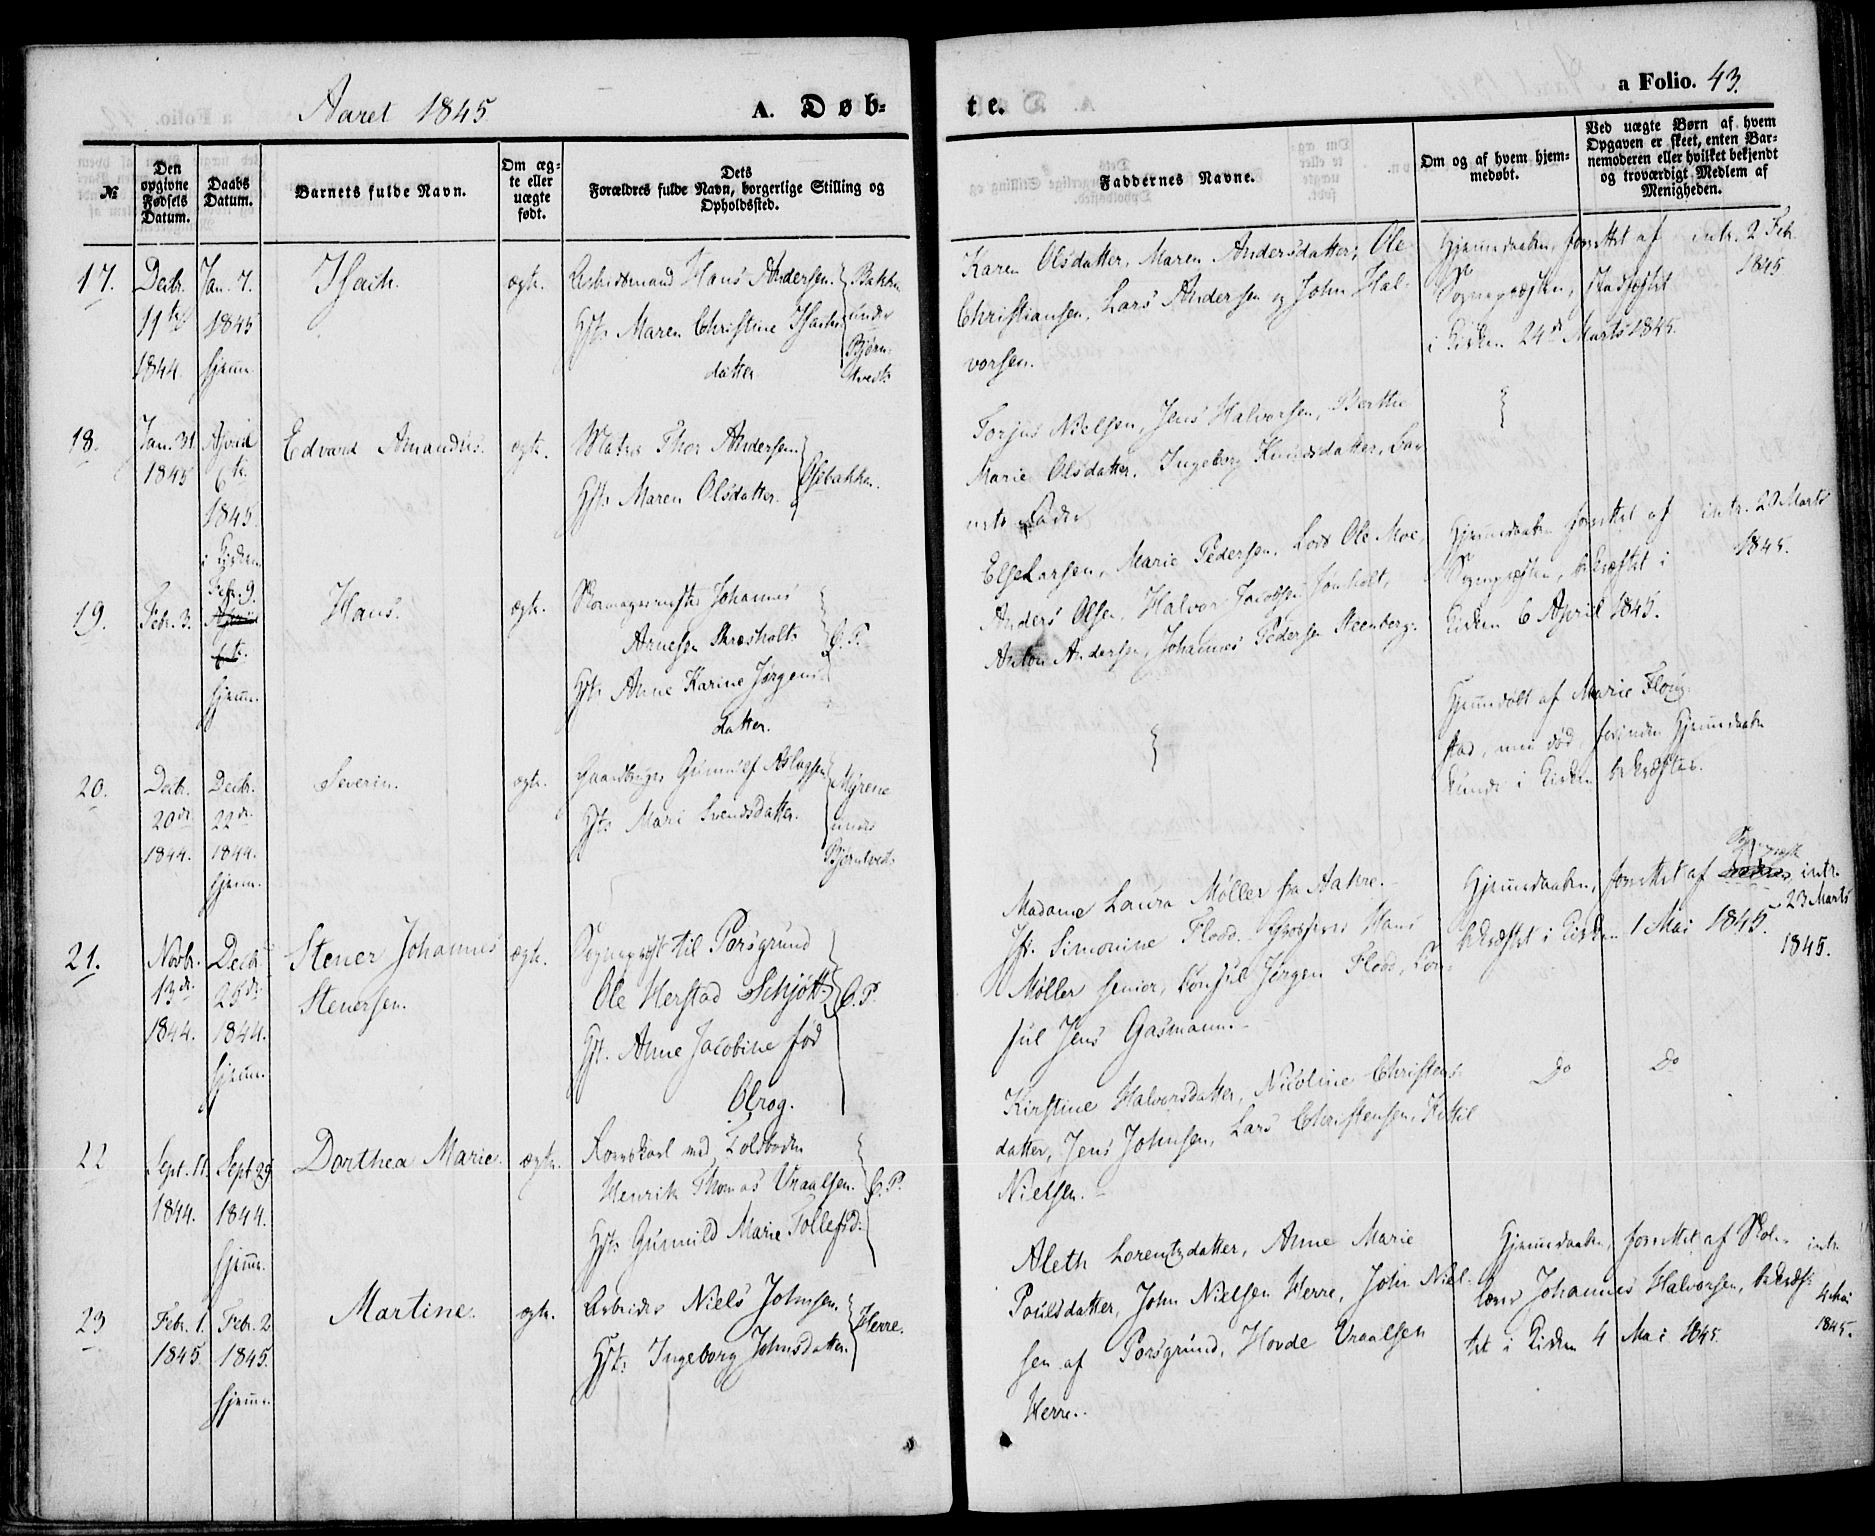 Aaret 1845
A. Døb-
te.
a Folio. 43.
№
Den opgivne Fødsels Datum.
Daabs Datum.
Barnets fulde Navn.
Om ægte eller uægte født.
Dets Forældres fulde Navn, borgerlige Stilling og Opholdssted.
Faddernes Navne.
Om og af hvem hjemmedøbt.
Ved uægte Børn af hvem Opgaven er skeet, enten Barnemoderen eller hvilket bekjendt og troværdigt Medlem af Menigheden.
17.
Decbr.
11te
1844.
Jan. 7.
1845
hjem.
Isach.
ægte.
Arbeidsmand Hans Andersen.
Hst. Maren Christine Isachs
datter
Bakken
under
Bjørn-
tvedt.
Karen Olsdatter, Maren Andersdatter, Ole
Christiansen, Lars Andersen og John Hal-
vorsen.
Hjemmedaaben, forrettet af
Sognepræsten, stadfæstet
i Kirken 24de Marts 1845.
intr. 2 Febr.
1845
18.
Jan. 31
1845
April
6te
1845.
i Kirken
Edvard Amandus.
ægte.
Matros Thor Andersen
Hst. Maren Olsdatter.
Osebakken.
Torjus Nielsen, Jens Halvorsen, Berthe
Marie Olsdatter, Ingeborg Knudsdatter, Bar-
nets Fader
19.
Febr. 3.
Febr. 9.
April
6te.
hjem.
Hans.
ægte.
Skomagermester Johannes
Arnesen
Hst. Anne Karine Jørgens
datter.
G.P.
Else Larsen, Marie Pedersen, Lods Ole Moe,
Anders Olsen, Halvor Jacobsen Jonholt,
Anton Andersen, Johannes Pedersen Steenberg.
Hjemmedaaben forrettet af
Sognepræsten, bekræftet i
Kirken 6 April 1845.
intr. 20 Marts
1845.
20.
Decbr.
20de
1844.
Decbr.
22de.
1844.
hjem.
Severin.
ægte.
Gaardbruger Gunnulf Aslagsen
Hst. Mari Svendsdatter.
Myrene
under
Bjørntvedt
Hjemmedøbt af Marie Floug-
stad, men død, forinden Hjemmedaaben
kunde i Kirken bekræftes.
21.
Novbr.
13de.
1844.
Decbr.
25de
1844.
hjem.
Stener Johannes
Stenersen.
ægte.
Sognepræst til Porsgrund
Ole Herstad Schjøtt
Hst. Anne Jacobine fød
Olrog.
G.P.
Madame Laura Møller fra Aakre.
Fr. Simonine Flood. Grosserer Hans
Møller senior, Konsul Jørgen Flood, Kon-
sul Jens Gasmann.
Hjemmedaaben, forrettet af
Sognepræst
bekræftet i Kirken 1 Mai 1845.
intr.
23 Marts
1845.
22
Sept. 11.
1844.
Sept 29
1844.
hjem.
Dorthea Marie.
ægte.
Roerskarl ved Toldboden
Henrik Thomas Vraalsen.
Hst. Gunnild Marie Tollefsd.
G.P.
Kirstine Halvorsdatter, Nicoline Christens-
datter, Jens Johnsen, Lars Christensen, Kittil
Nielsen.
Do
Do
23
Febr. 1.
1845.
Febr. 2
1845.
hjem.
Martine.
ægte.
Arbeider Niels Johnsen.
Hst. Ingeborg Johnsdatter.
Herre.
Aleth Lorentzdatter, Anne Marie
Poulsdatter, John Nielsen Herre, John Niel-
sen af Porsgrund, Hovde Vraalsen
Herre.
Hjemmedaaben, forrettet af Skole-
lærer Johannes Halvorsen, bekræf-
tet i Kirken 4 Mai 1845.
intr.
4 Mai
1845.